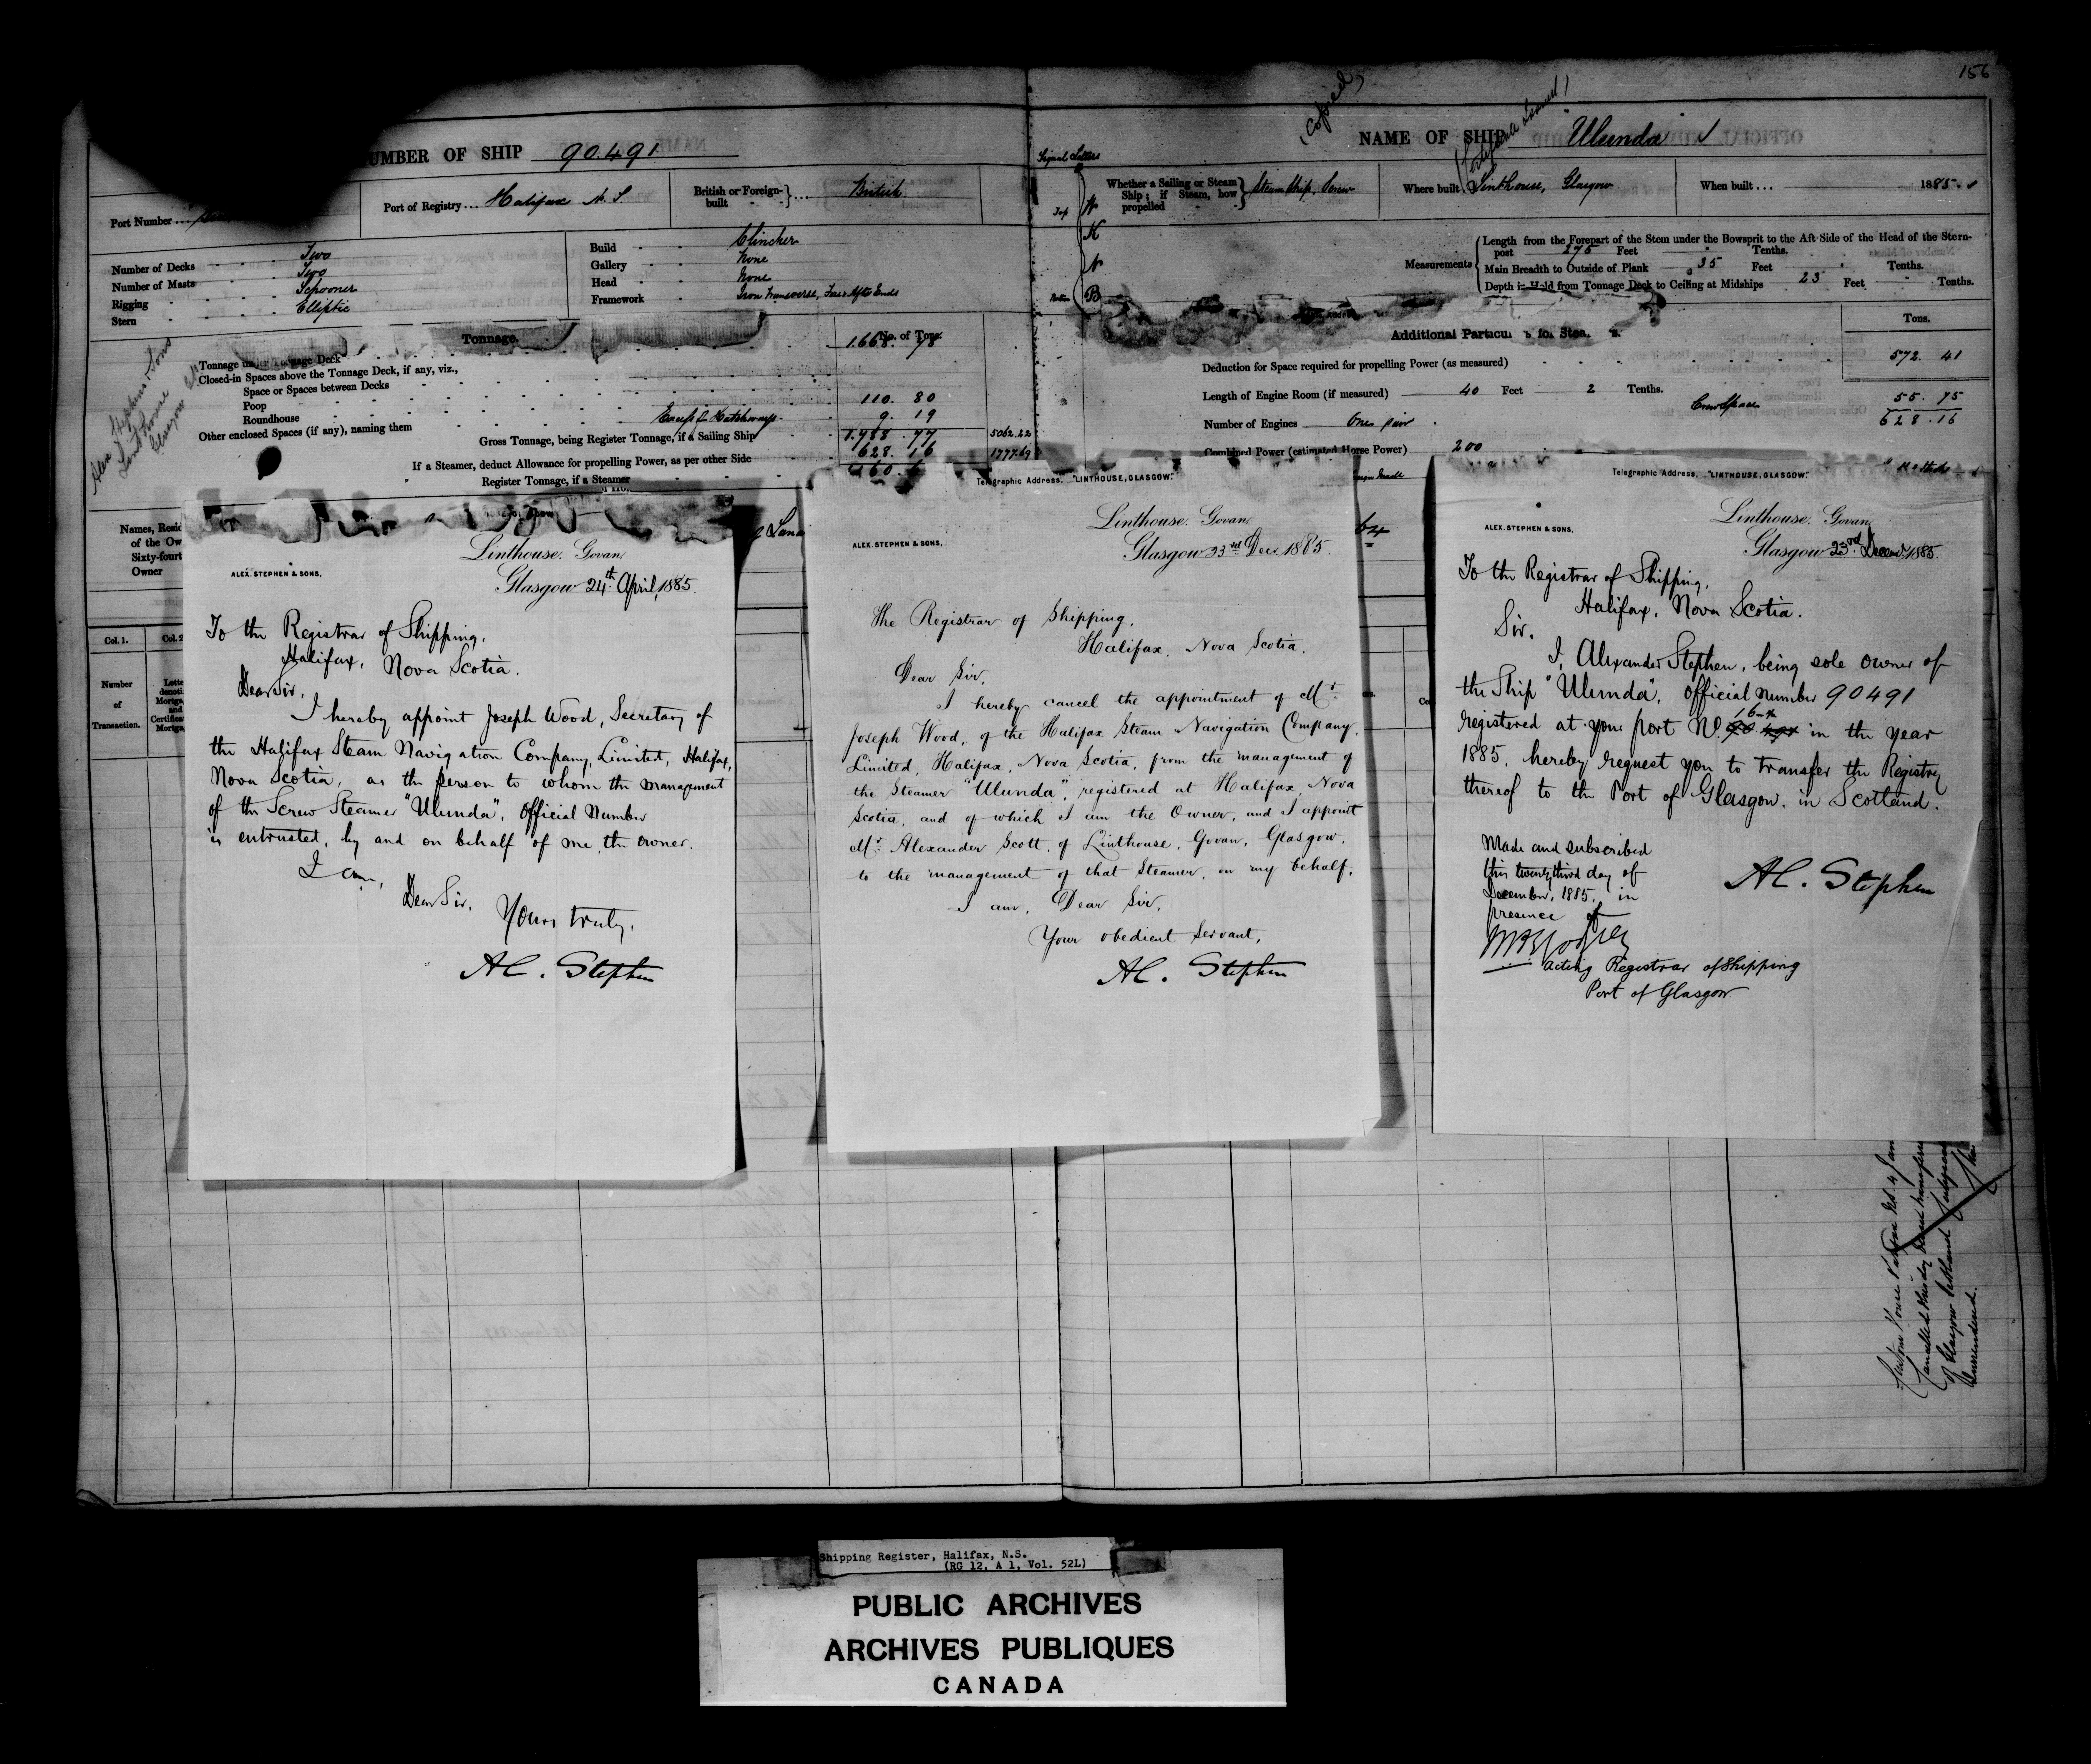 156
(Copied)
NUMBER OF SHIP 90.491
NAME OF SHIP "Ulunda"
Port Number ...
Port of Registry ... Halifax N. S.
British or Foreign-built British
Signal Letters
Whether a Sailing or Steam Ship; if Steam, how propelled Steam Ship, Screw
Where built Linthouse, Glasgow
When built ... 1885.
Top
W
K
B
Number of Decks Two
Number of Masts Two
Rigging Schooner
Stern Elliptic
Build Clincher
Gallery None
Head None
Framework Iron Transverse,
Measurements
Length from the Forepart of the Stem under the Bowsprit to the Aft-Side of the Head of the Stern-
post 275 Feet Tenths.
Main Breadth to Outside of Plank 35 Feet Tenths.
Depth in Hold from Tonnage Deck to Ceiling at Midships 23 Feet Tenths.
Alex Stephen & Sons
Linthouse
Glasgow
Tonnage.
No. of Tons.
Tonnage under Tonnage Deck 1.668. 78
Closed-in Spaces above the Tonnage Deck, if any, viz.,
Space or Spaces between Decks
Poop 110. 80
Roundhouse 9. 19
Other enclosed Spaces (if any), naming them Excess of Hatchways
Gross Tonnage, being Register Tonnage, if a Sailing Ship 1.788. 77 5062.22
If a Steamer, deduct Allowance for propelling Power, as per other Side 628. 16 1777.69
Register Tonnage, if a Steamer
Tons.
Deduction for Space required for propelling Power (as measured) 572. 41
Length of Engine Room (if measured) 40 Feet 2 Tenths.
Crew Space 55. 75
628. 16
Number of Engines One pair
Combined Power (estimated Horse Power) 200
64
Names, Resid
of the Ow
Sixty-fourt
Owner
Col. 1.
Col. 2
Number
of
Transaction.
ALEX. STEPHEN & SONS.
Linthouse. Govan.
Glasgow 24th April, 1885.
To the Registrar of Shipping,
Halifax, Nova Scotia.
Dear Sir,
I hereby appoint Joseph Wood, Secretary of
the Halifax Steam Navigation Company, Limited, Halifax,
Nova Scotia, as the person to whom the management
of the Screw Steamer "Ulunda", Official Number
is entrusted, by and on behalf of me, the owner.
I am,
Dear Sir,
Yours truly,
AL. Stephen
Telegraphic Address, "LINTHOUSE, GLASGOW."
ALEX. STEPHEN & SONS.
Linthouse. Govan.
Glasgow 23rd Dec. 1885.
The Registrar of Shipping,
Halifax, Nova Scotia.
Dear Sir,
I hereby cancel the appointment of Mr.
Joseph Wood, of the Halifax Steam Navigation Company,
Limited, Halifax, Nova Scotia, from the management of
the Steamer "Ulunda", registered at Halifax, Nova
Scotia, and of which I am the Owner, and I appoint
Mr. Alexander Scott, of Linthouse, Govan, Glasgow,
to the management of that Steamer, on my behalf.
I am, Dear Sir,
Your obedient Servant,
AL. Stephen
Telegraphic Address, "LINTHOUSE, GLASGOW."
ALEX. STEPHEN & SONS.
Linthouse. Govan.
Glasgow 23rd Decemr. 1885.
To the Registrar of Shipping,
Halifax, Nova Scotia.
Sir,
I, Alexander Stephen, being sole owner of
the Ship "Ulunda", Official Number 90491
registered at your port No. 16 in the year
1885, hereby request you to transfer the Registry
thereof to the Port of Glasgow, in Scotland.
Made and subscribed
this twenty third day of
December, 1885, in
presence of
AL. Stephen
Acting Registrar of Shipping
Port of Glasgow
Shipping Register, Halifax, N.S.
(RG 12, A 1, Vol. 52L)
PUBLIC ARCHIVES
ARCHIVES PUBLIQUES
CANADA